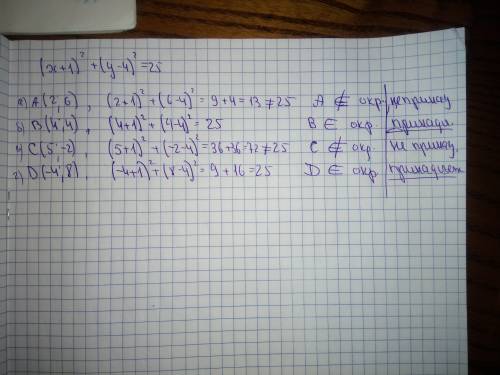 (x+1)² + (y-4)² = 25
а) A(2; 6), (2+1)² + (6-4)² = 9+4 = 13 ≠ 25 A ∉ окр. не принад
б) B(4; 4), (4+1)² + (4-4)² = 25 B ∈ окр принадл.
C(5; -2), (5+1)² + (-2-4)² = 36+36=72 ≠ 25 C ∉ окр. не принад.
г) D(-4; 8), (-4+1)² + (8-4)² = 9+16 = 25 D ∈ окр принадлеж